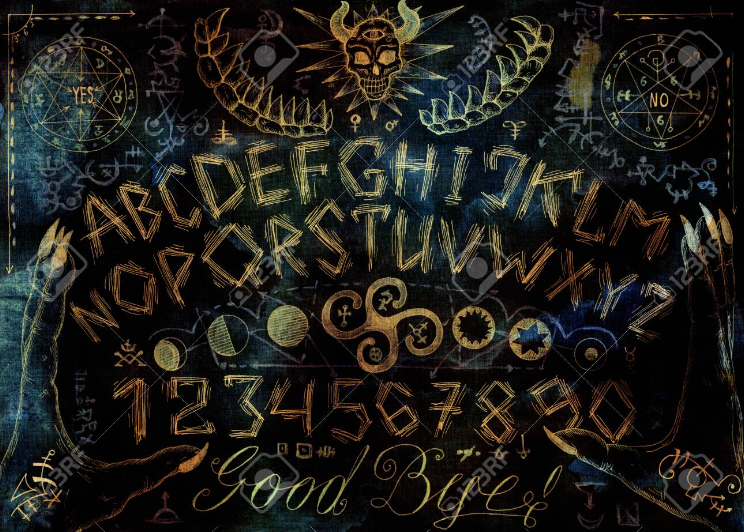 YES
NO
ABCDEFGHIJKLM
NOPQRSTUVWXYZ
1234567890
Good Bye!
123RF